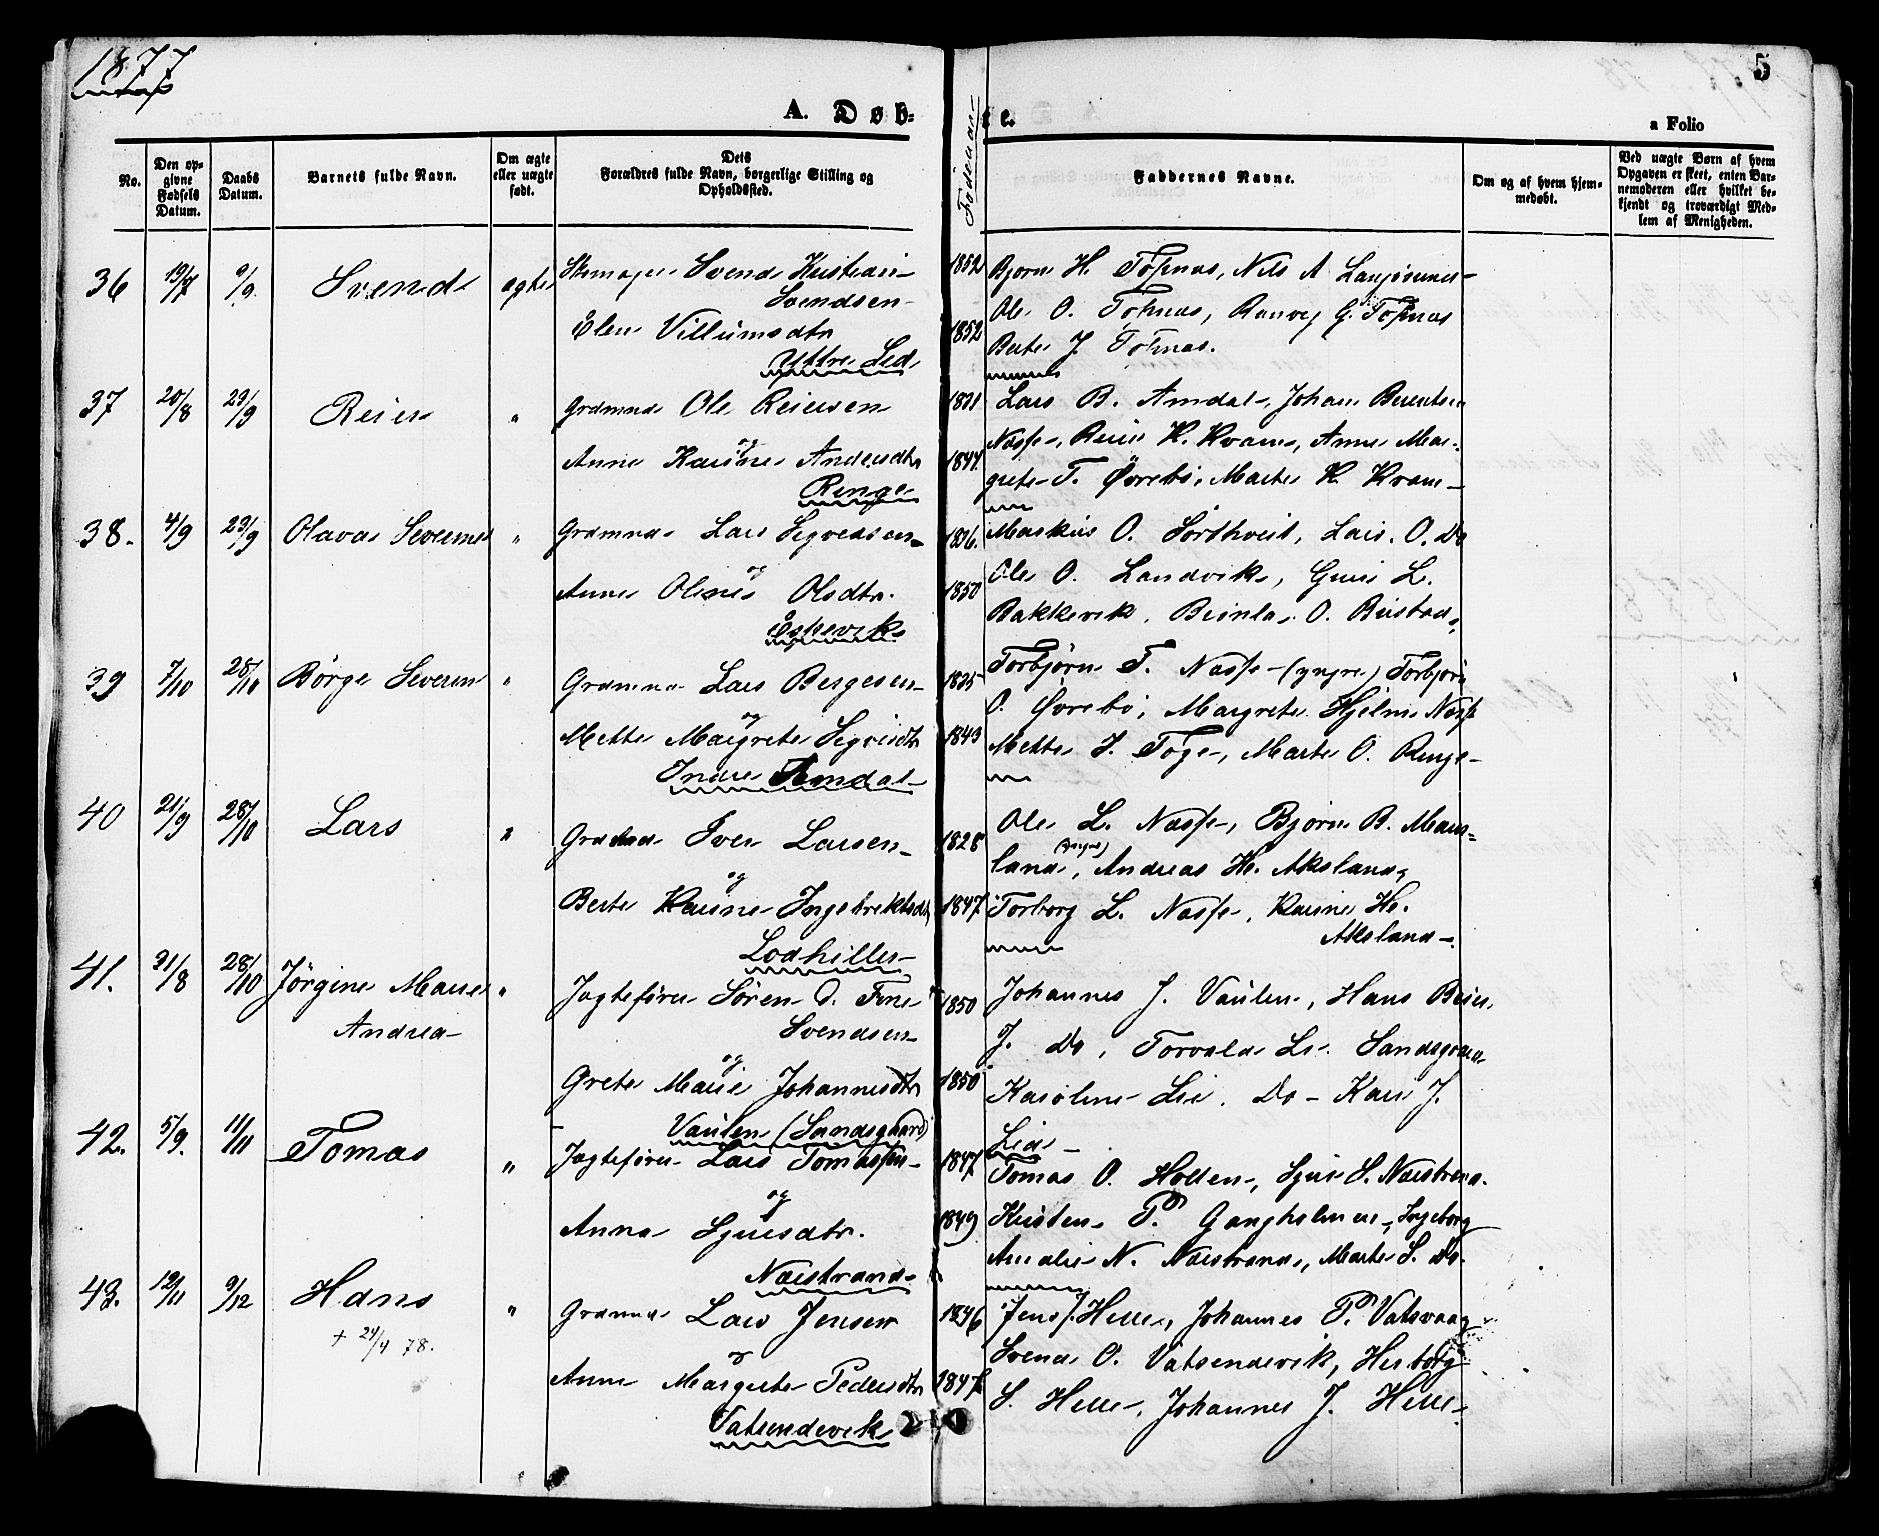 1877
5
A. Døb-
te.
a Folio
No.
Den op-
givne
Fødsels
Datum.
Daabs
Datum.
Barnets fulde Navn.
Om ægte
eller uægte
født.
Dets
Forældres fulde Navn, borgerlige Stilling og
Opholdssted.
Fødeaar
Faddernes Navne.
Om og af hvem hjem-
medøbt.
Ved uægte Børn af hvem
Opgaven er skeet, enten Bar-
nemoderen eller hvilket be-
kjendt og troværdigt Med-
lem af Menigheden.
36 19/7 9/9. Svend ægte
Svend Kristian
Svendsen 1852
Elen Villumsdtr 1852
Yttre Lid
Bjorn H. Tofnæs, Nils A
Ole O. Tofnæs, Ranvey G. Tofnæs
Berte J. Tofnæs.
37 20/8 23/9 Reier "
Grdmand Ole Reiersen 1831
og
Anne Karine Andersdtr 1847.
Renge
Lars B. Amdal, Johan Berentsen
Næsse, Reier K. Kvam, Anne Mar-
grete T. Øvrebø, Marte K. Kvam
38. 4/9 23/9 Olava Severine "
Grdmand Lars Sigvedsen 1836.
og
Anne Oline Olsdtr. 1850
Espevik
Maskus O. Sørthveit, Lars. O. Do
Ole O. Landvik, Guri L.
Bakkevik, O. Bustad,
39 7/10 28/10 Børge Severin "
Grdmand Lars Bergesen 1835
og
Mette Margrete Sigvedtr 1843
Indre Amdal
Torbjørn T. Næsse (yngre) Torbjørn
O. Øvrebø, Margrete Hjelm Næsse
Mette J. Tøge, Marte O. Renge
40 21/9 28/10 Lars "
Iver Larsen 1828
og
Berte Karine Ingebrektsdt 1847.
Lodhiller
Ole L. Næsse, Bjørn B. Mæm-
land (yngre), Andreas H. Aksland,
Torborg L. Næsse, Karine H.
Aksland.
41. 31/8 28/10 Jörgine Marie "
Andrea
Jagtefører Søren O. Tone
Svendsen 1850
og
Grete Marie Johannesdtr 1850
Vaulen (Sandsgaard)
Johannes J. Vaulen, Hans Beier
J. Do, Torvald L. Sandsgaard
Karoline Lie. Do - Kari J.
Lid
42. 5/9. 11/11 Tomas "
Jagtefører Lars Tomassen 1847
og
Anna Sjursdtr. 1849
Nærstrand
Tomas O. Holten, Sjur S. Nærstrand.
Kristen P. Gangholmen, Ingeborg
Amalie N. Nærstrand, Marte S. Do.
43. 12/11 9/12 Hans "
+ 24/4 78.
Grdmand Lars Jensen 1846
og
Anne Margrete Pedersdtr 1847
Vatsendevik
Jens J. Helle, Johannes P. Vatsvaag
Svend O. Vatsendevik, Herborg
S. Helle, Johannes J. Helle.